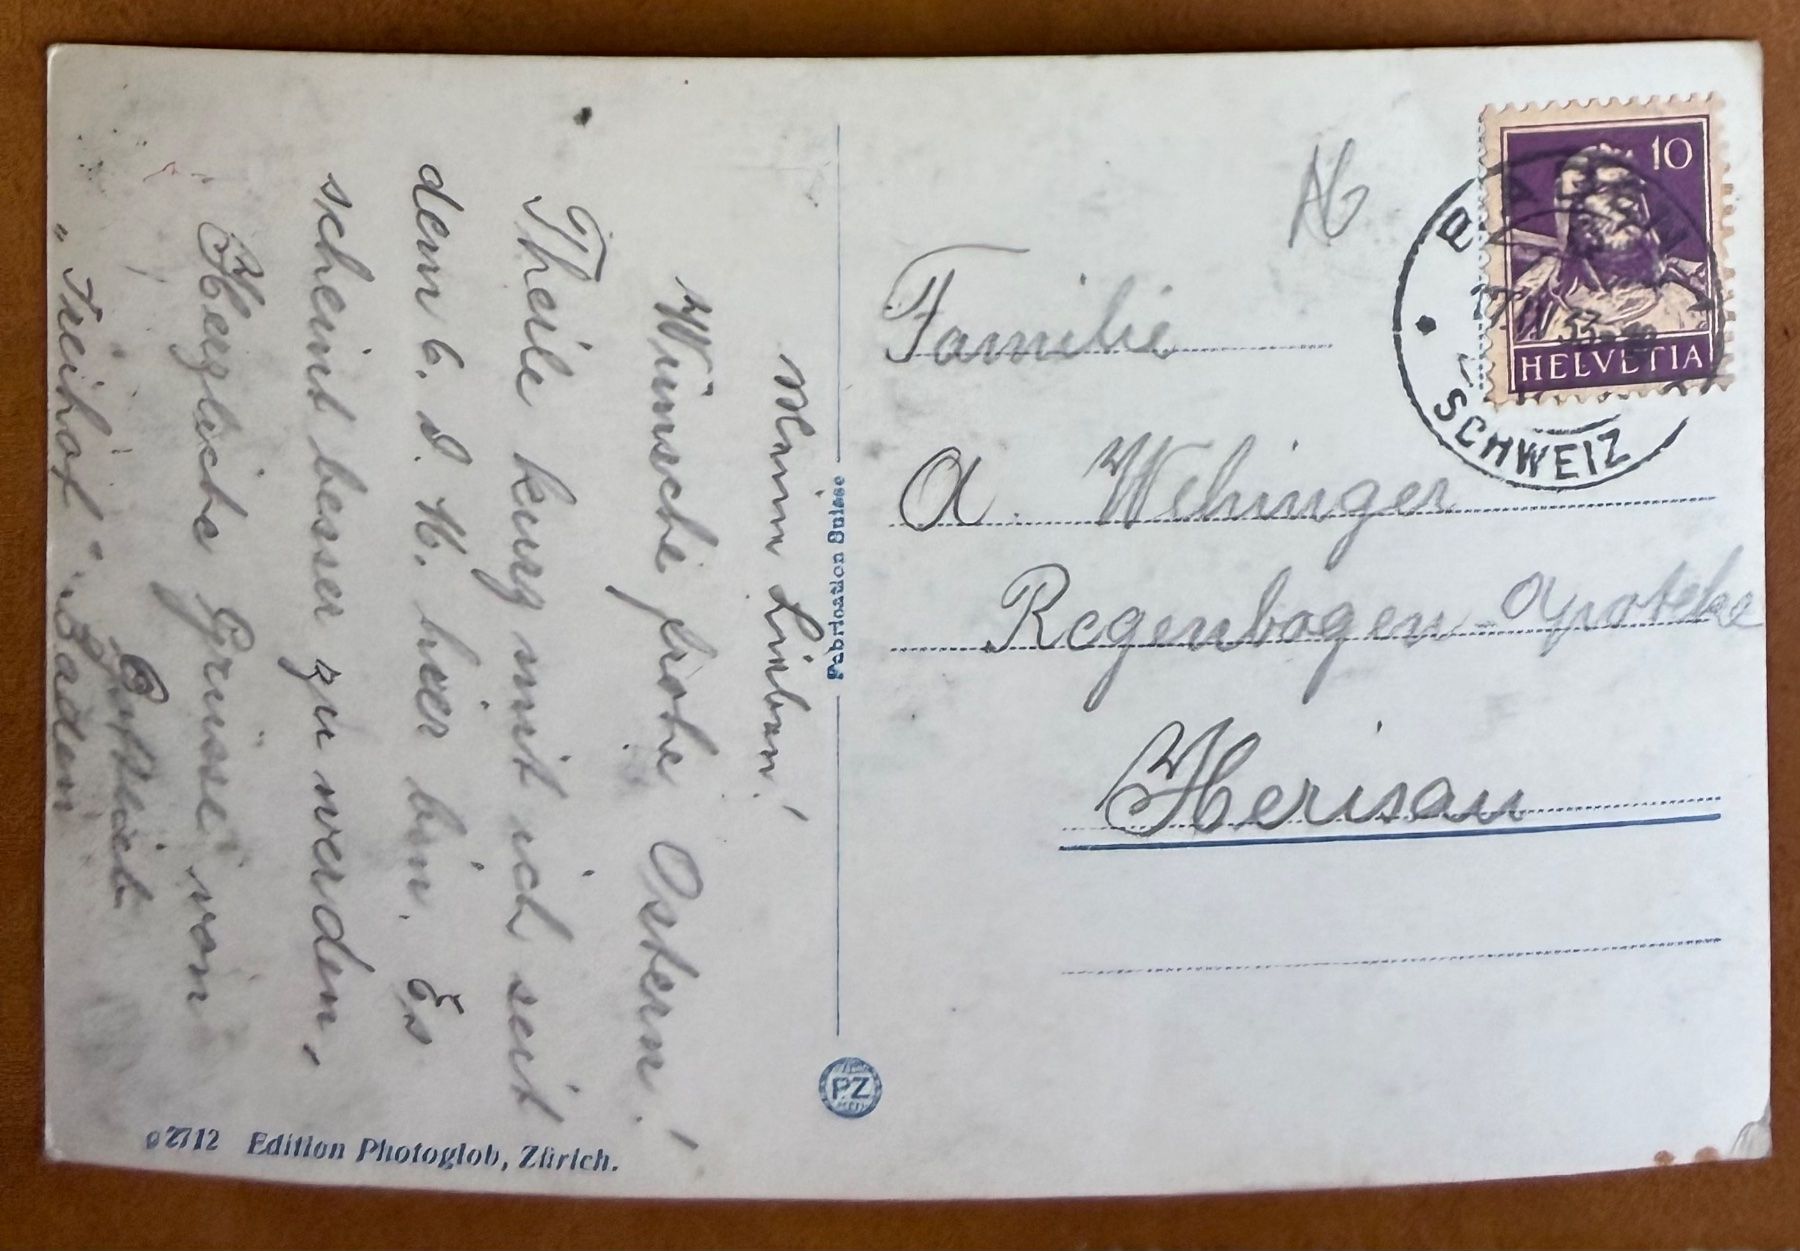 Wünsche frohe Ostern!
Theile kurz mit ich seit
dem 6. d. M. hier bin. Es
scheint besser zu werden,
Herzliche Grüsse von
Gottlieb
"Freihof" Baden
Fabrication Suisse
PZ
2712 Edition Photoglob, Zürich.
Familie
A. Wehinger
Regenbogen-Apotheke
Herisau
10
HELVETIA
BADEN
SCHWEIZ